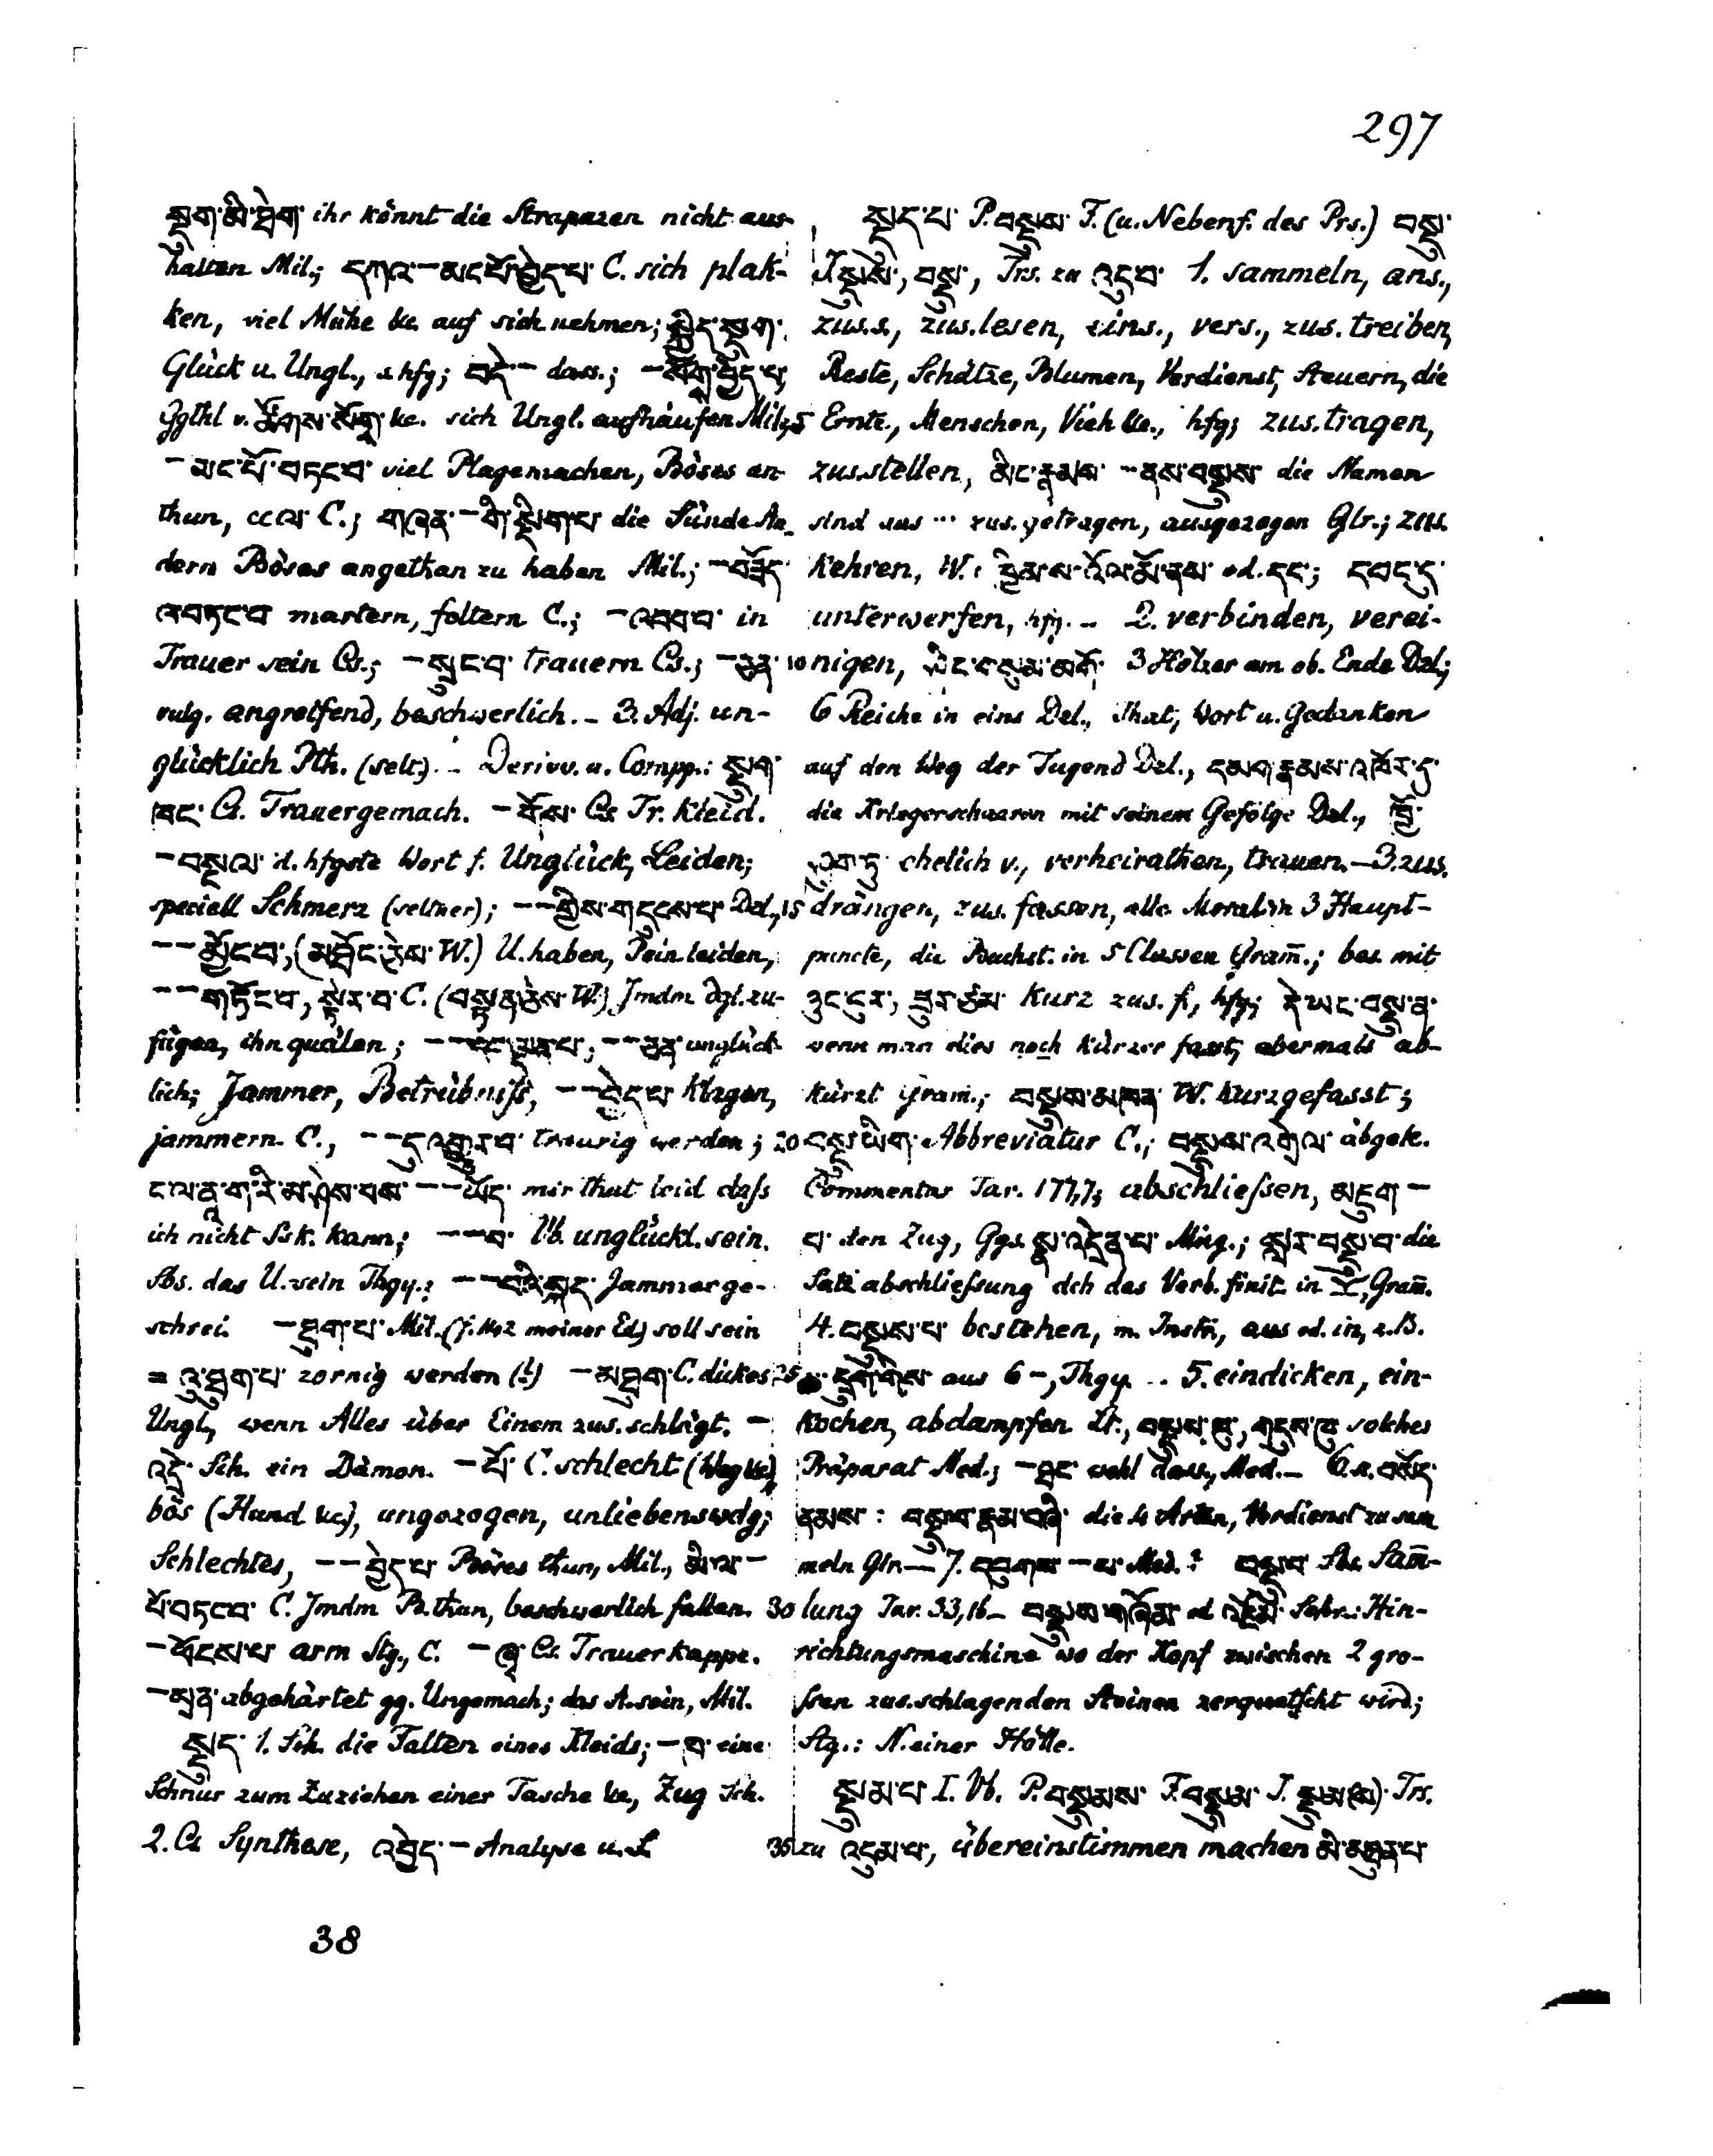 297
སྡུག་མི་ཐེག་ ihr könnt die Strapazen nicht aus-
halten Mil.; དཀའ་ – མང་པོ་བྱེད་པ་ C. sich plak-
ken, viel Mühe &c. auf sich nehmen; སྐྱིད་སྡུག་
Glück u. Ungl., s. hfg; བདེ་ – dass.; –
Ggthl v. ཚོགས་སོག་ &c. sich Ungl. aufhäufen Mil.;
– མང་པོ་བཏང་བ་ viel Plage machen, Böses an-
thun, cc ལ་ C.; གཞན་ – གི་སྡིག་པ་ die Sünde An-
dern Böses angethan zu haben Mil.; –
martern, foltern C.; – in
Trauer sein Cs.; – སྲུང་བ་ trauern Cs.; –
vulg. angreifend, beschwerlich. – 3. Adj. un-
glücklich Pth. (selt.). – Derivv. u. Compp.: སྡུག་
ཁང་ Cs. Trauergemach. – གོས་ Cs. Tr. Kleid.
– བསྔལ་ d. hfgste Wort f. Unglück, Leiden;
speciell Schmerz (seltner); – – གྱིས་གདུངས་པ་ Dzl.,
– – མྱོང་བ་, (མཐོང་ཅེས་ W.) U. haben, Pein leiden,
– – གཏོང་བ, སྟེར་བ་ C. (W.) Jmdm dgl. zu-
fügen, ihn quälen; – – – – unglück-
lich; Jammer, Betrübniſs, – – བྱེད་པ་ klagen,
jammern C., – – དུ་འགྱུར་བ་ traurig werden;
– – ཡོད་ mir thut leid daſs
ich nicht Ssk. kann; – – བ་ Vb. unglückl. sein.
Sbs. das U. sein Thgy.: – – བའི་སྐད་ Jammerge-
schrei. – ཐུག་པ་ Mil. meiner Ed.) soll sein
= འུ་ཐུག་པ་ zornig werden (?) – མཐུག་ C. dickes
Ungl., wenn Alles über Einem zus.schlägt. –
འདྲེ་ Sch. ein Dämon. – པོ་ C. schlecht (Weg &c.)
bös (Hund &c.), ungezogen, unliebenswdg;
Schlechtes, – – བྱེད་པ་ Böses thun, Mil., མི་ལ་ –
པོ་བཏང་བ་ C. Jmdm B. thun, beschwerlich fallen.
– ཕོངས་པ་ arm Stg., C. – ཞྭ་ Cs. Trauerkappe.
– སྲན་ abgehärtet gg. Ungemach; das A. sein, Mil.
སྡུད་ 1. Sch. die Falten eines Kleids; – བུ་ eine
Schnur zum Zuziehen einer Tasche &c., Zug Sch.
2. Cs. Synthese, འབྱེད་ – Analyse u. S.
སྡུད་པ་ P. བསྡུས་ F. (u. Nebenf. des Prs.) བསྡུ་
J. སྡུས་, བསྡུ་, Trs. zu འདུ་བ་ 1. sammeln, ans.,
zus.s., zus.lesen, eins., vers., zus.treiben,
Reste, Schätze, Blumen, Verdienst, Steuern, die
5 Ernte, Menschen, Vieh &c., hfg; zus.tragen,
zus.stellen, མིང་རྣམས་ – ནས་བསྡུས་ die Namen
sind aus ... zus.getragen, ausgezogen Glr.; zus.
kehren, W.: od. དང་; དབང་དུ་
unterwerfen, hfg. – 2. verbinden, verei-
10 nigen, ཤིང་གསུམ་མགོ་ 3 Hölzer am ob. Ende Dzl.;
6 Reiche in eins Dzl., That, Wort u. Gedanken
auf den Weg der Tugend Dzl., དམག་རྣམས་འཁོར་དུ་
die Kriegerschaaren mit seinem Gefolge Dzl.,
ehelich v., verheirathen, trauen. – 3. zus.
15 drängen, zus.fassen, alle Moral in 3 Haupt-
puncte, die Buchst. in 5 Classen Gram̄.; bes. mit
ཉུང་ངུར་, ཟུར་ཙམ་ kurz zus. f., hfg; དེ་ཡང་བསྡུ་ན་
wenn man dies noch kürzer fasst, abermals ab-
kürzt Gram.; W. kurzgefasst;
20 བསྡུ་ཡིག་ Abbreviatur C.; བསྡུས་འགྲེལ་ abgek.
Commentar Tar. 177,7; abschlieſsen, མཇུག་ –
བ་ den Zug, Ggs. སྣ་འདྲེན་པ་ Mng.; སླར་བསྡུ་བ་ die
Satzabschlieſsung dch das Verb. finit. in Gram̄.
4. བསྡུས་པ་ bestehen, m. Instr., aus od. in, z.B.
25 དྲུག་གིས་ aus 6 –, Thgy. – 5. eindicken, ein-
kochen, abdampfen Lt., solches
Präparat Med.; – ཐང་ wohl dass., Med. – 6. བསོད་
ནམས་: བསྡུ་བ་རྣམ་བཞི་ die 4 Arten, Verdienst zu sam
meln Glr. – 7. དབུགས་ – པ་ Med.? བསྡུ་བ་ Sbs. Sam̄-
30 lung Tar. 33,16. – བསྡུས་གཞོམ་ od འཇོམས་ Schr.: Hin-
richtungsmaschine wo der Kopf zwischen 2 gro-
ſsen zus.schlagenden Steinen zerquetscht wird;
Stg.: N. einer Hölle.
སྡུམ་པ་ I. Vb. P. བསྡུམས་ F. བསྡུམ་ J. སྡུམ(ས)་ Trs.
35 zu འདུམ་པ་, übereinstimmen machen མི་མཐུན་པ་
38